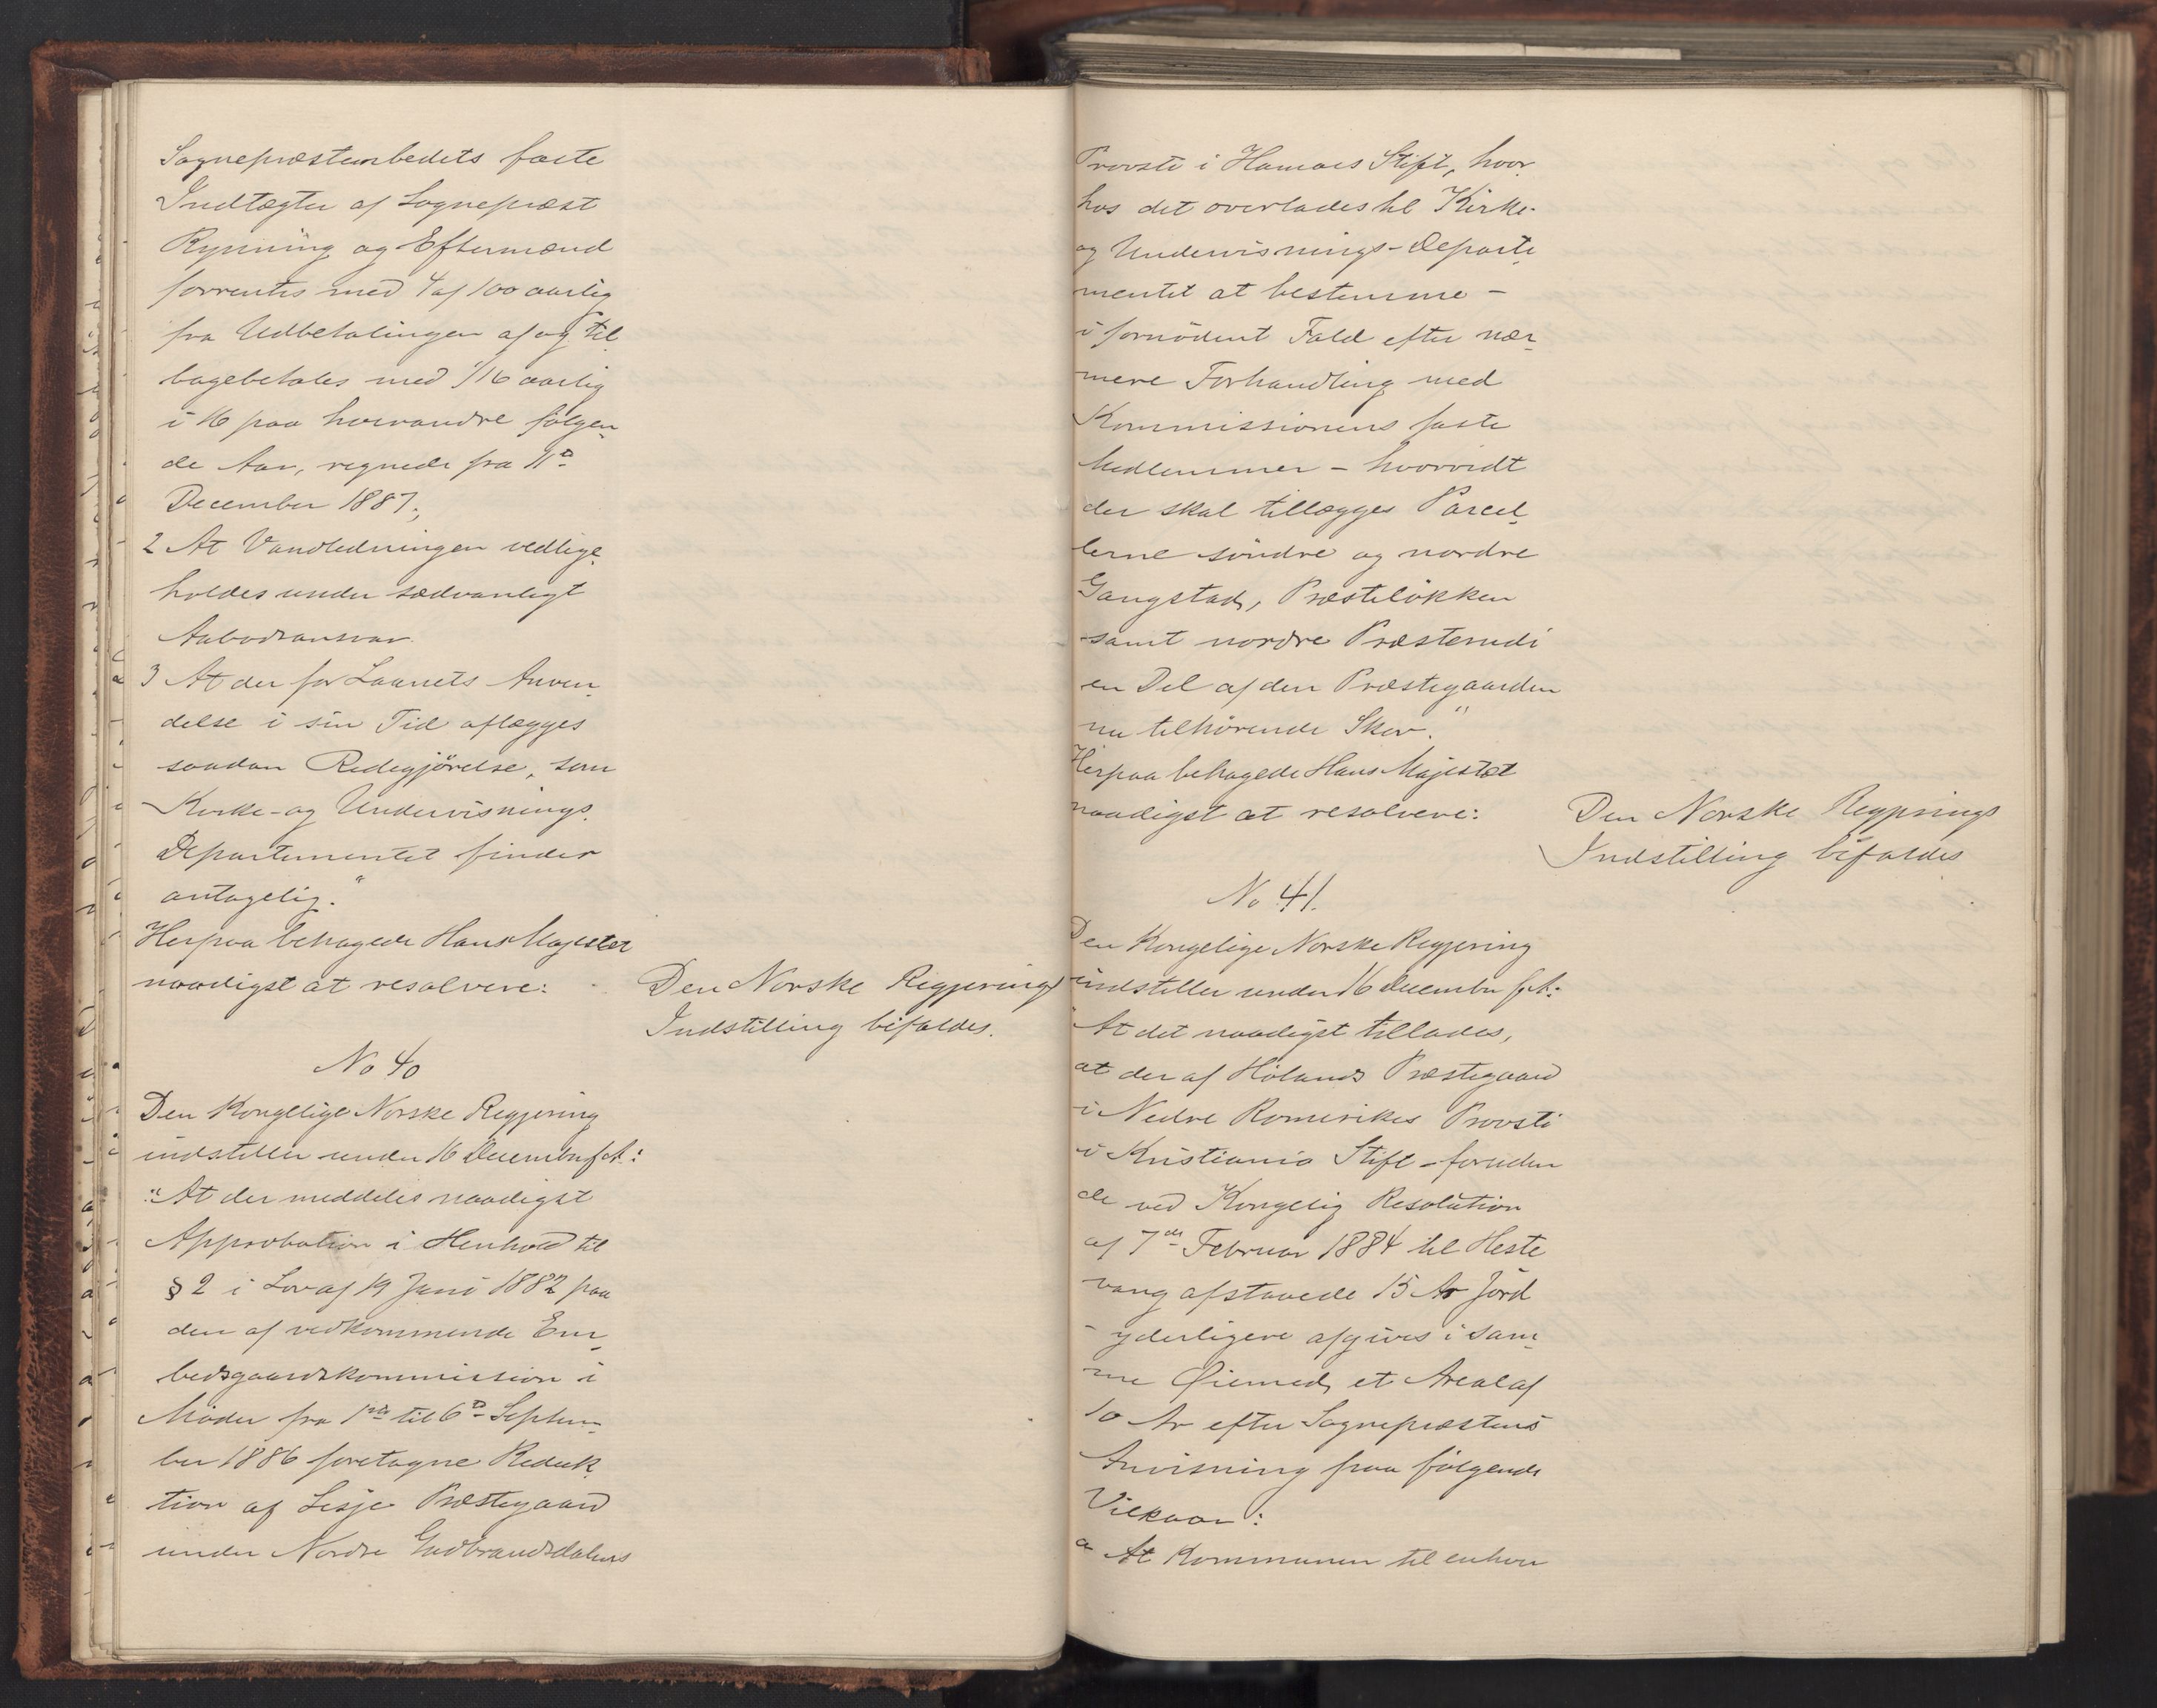 Sognepræstembedets faste
Indtægter af Sognepræst
Rynning og Eftermænd
forrentes med 4 af 100 aarlig
fra Udbetalingen af og til
bagebetales med 1/16 aarlig
i 16 paa hverandre følgen
de Aar, regnede fra 11te
December 1887;
2 At Vandledningen vedlige
holdes under sædvanligt
Aabodsansvar.
3 At der for Laanets Anven
delse i sin Tid aflægges
saadan Redegjörelse, som
Kirke- og Undervisnings
Departementet finder
antagelig."
Herpaa behagede Hans Majestæt
naadigst at resolvere:
Den Norske Regjerings
Indstilling bifaldes.
No 40
Den Kongelige Norske Regjering
indstiller under 16 December f.A:
"At der meddeles naadigst
Approbation i Henhold til
§ 2 i Lov af 19 Juni 1882 paa
den af vedkommende Em
bedsgaardskommission i
Møder fra 1ste til 6te Septem
ber 1886 foretagne Reduk
tion af Lesje Præstegaard
under Nordre Gudbrandsdalens
Provsti i Hamars Stift, hvor
hos det overlades til Kirke-
og Undervisnings-Departe
mentet at bestemme –
i fornödent Fald efter nær
mere Forhandling med
Kommissionens faste
Medlemmer – hvorvidt
der skal tillægges Parcel
lerne söndre og nordre
Gangstad, Præstelökken
samt nordre Præsterudi
en Del af den Præstegaarden
nu tilhörende Skov."
Herpaa behagede Hans Majestæt
naadigst at resolvere:
Den Norske Regjerings
Indstilling bifaldes
No 41.
Den Kongelige Norske Regjering
indstiller under 16 December f.A:
"At det naadigst tillades,
at der af Hölands Præstegaard
i Nedre Romerikes Provsti
i Kristiania Stift – foruden
de ved Kongelig Resolution
af 7de Februar 1884 til Heste
vang afstaaede 15 Ar Jord
– yderligere afgives i sam
me Øiemed et Areal af
10 Ar efter Sognepræstens
Anvisning paa fölgende
Vilkaar:
a At Kommunen til enhver